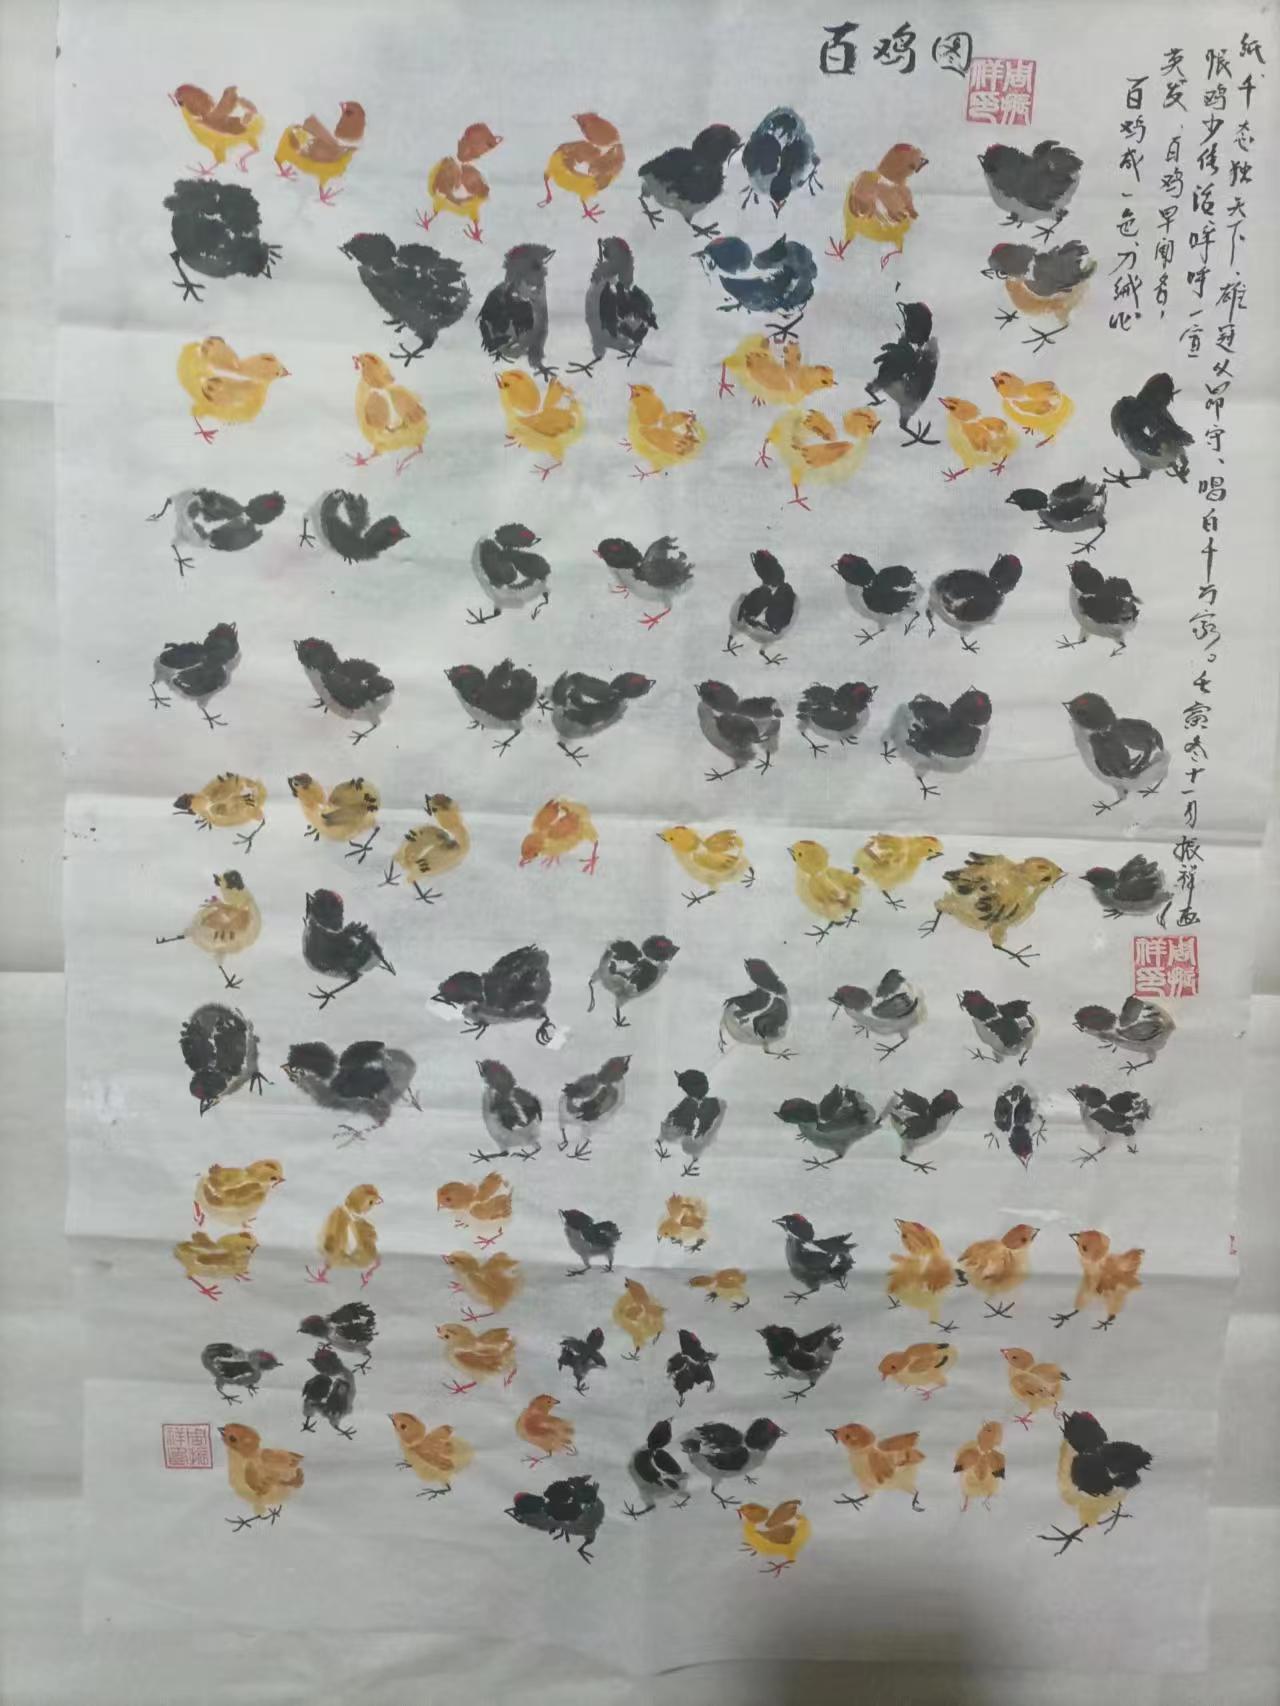 百鸡图
周振祥印
百鸡成一色、刀绒
英发、百鸡早闻名，
恨鸡少传活呼呼一宣
紙千态独天下、雄冠昂守、唱白千万家。壬寅冬十一月振祥画
周振祥印
周振祥印